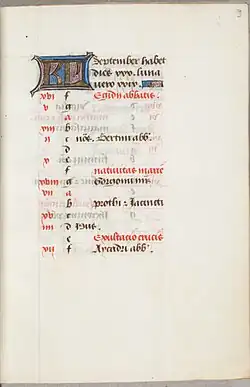 KL September habet
dies xxx. luna
vero xxix.
xvi f Egidii abbatis.
v g
a
xiii b
ii c nōs. Bertini abb
d
x e
f nativitas marie
xviii g Gorgonii m
vii a
b prothi ⁊ Jacincti
xv c
iiii d Idus.
e Exaltacio crucis
xii f